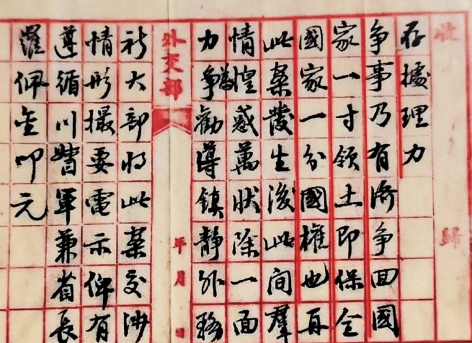 收 歸
存據理力
争事乃有濟争回國
家一寸領土即保全
國家一分國權也再
此案發生後此間羣
情惶惑萬狀除一面
力争勸導鎮静外務
外交部 年月日
祈大部將此案交涉
情形撮要電示俾有
遵循川督軍兼省長
羅佩金叩元